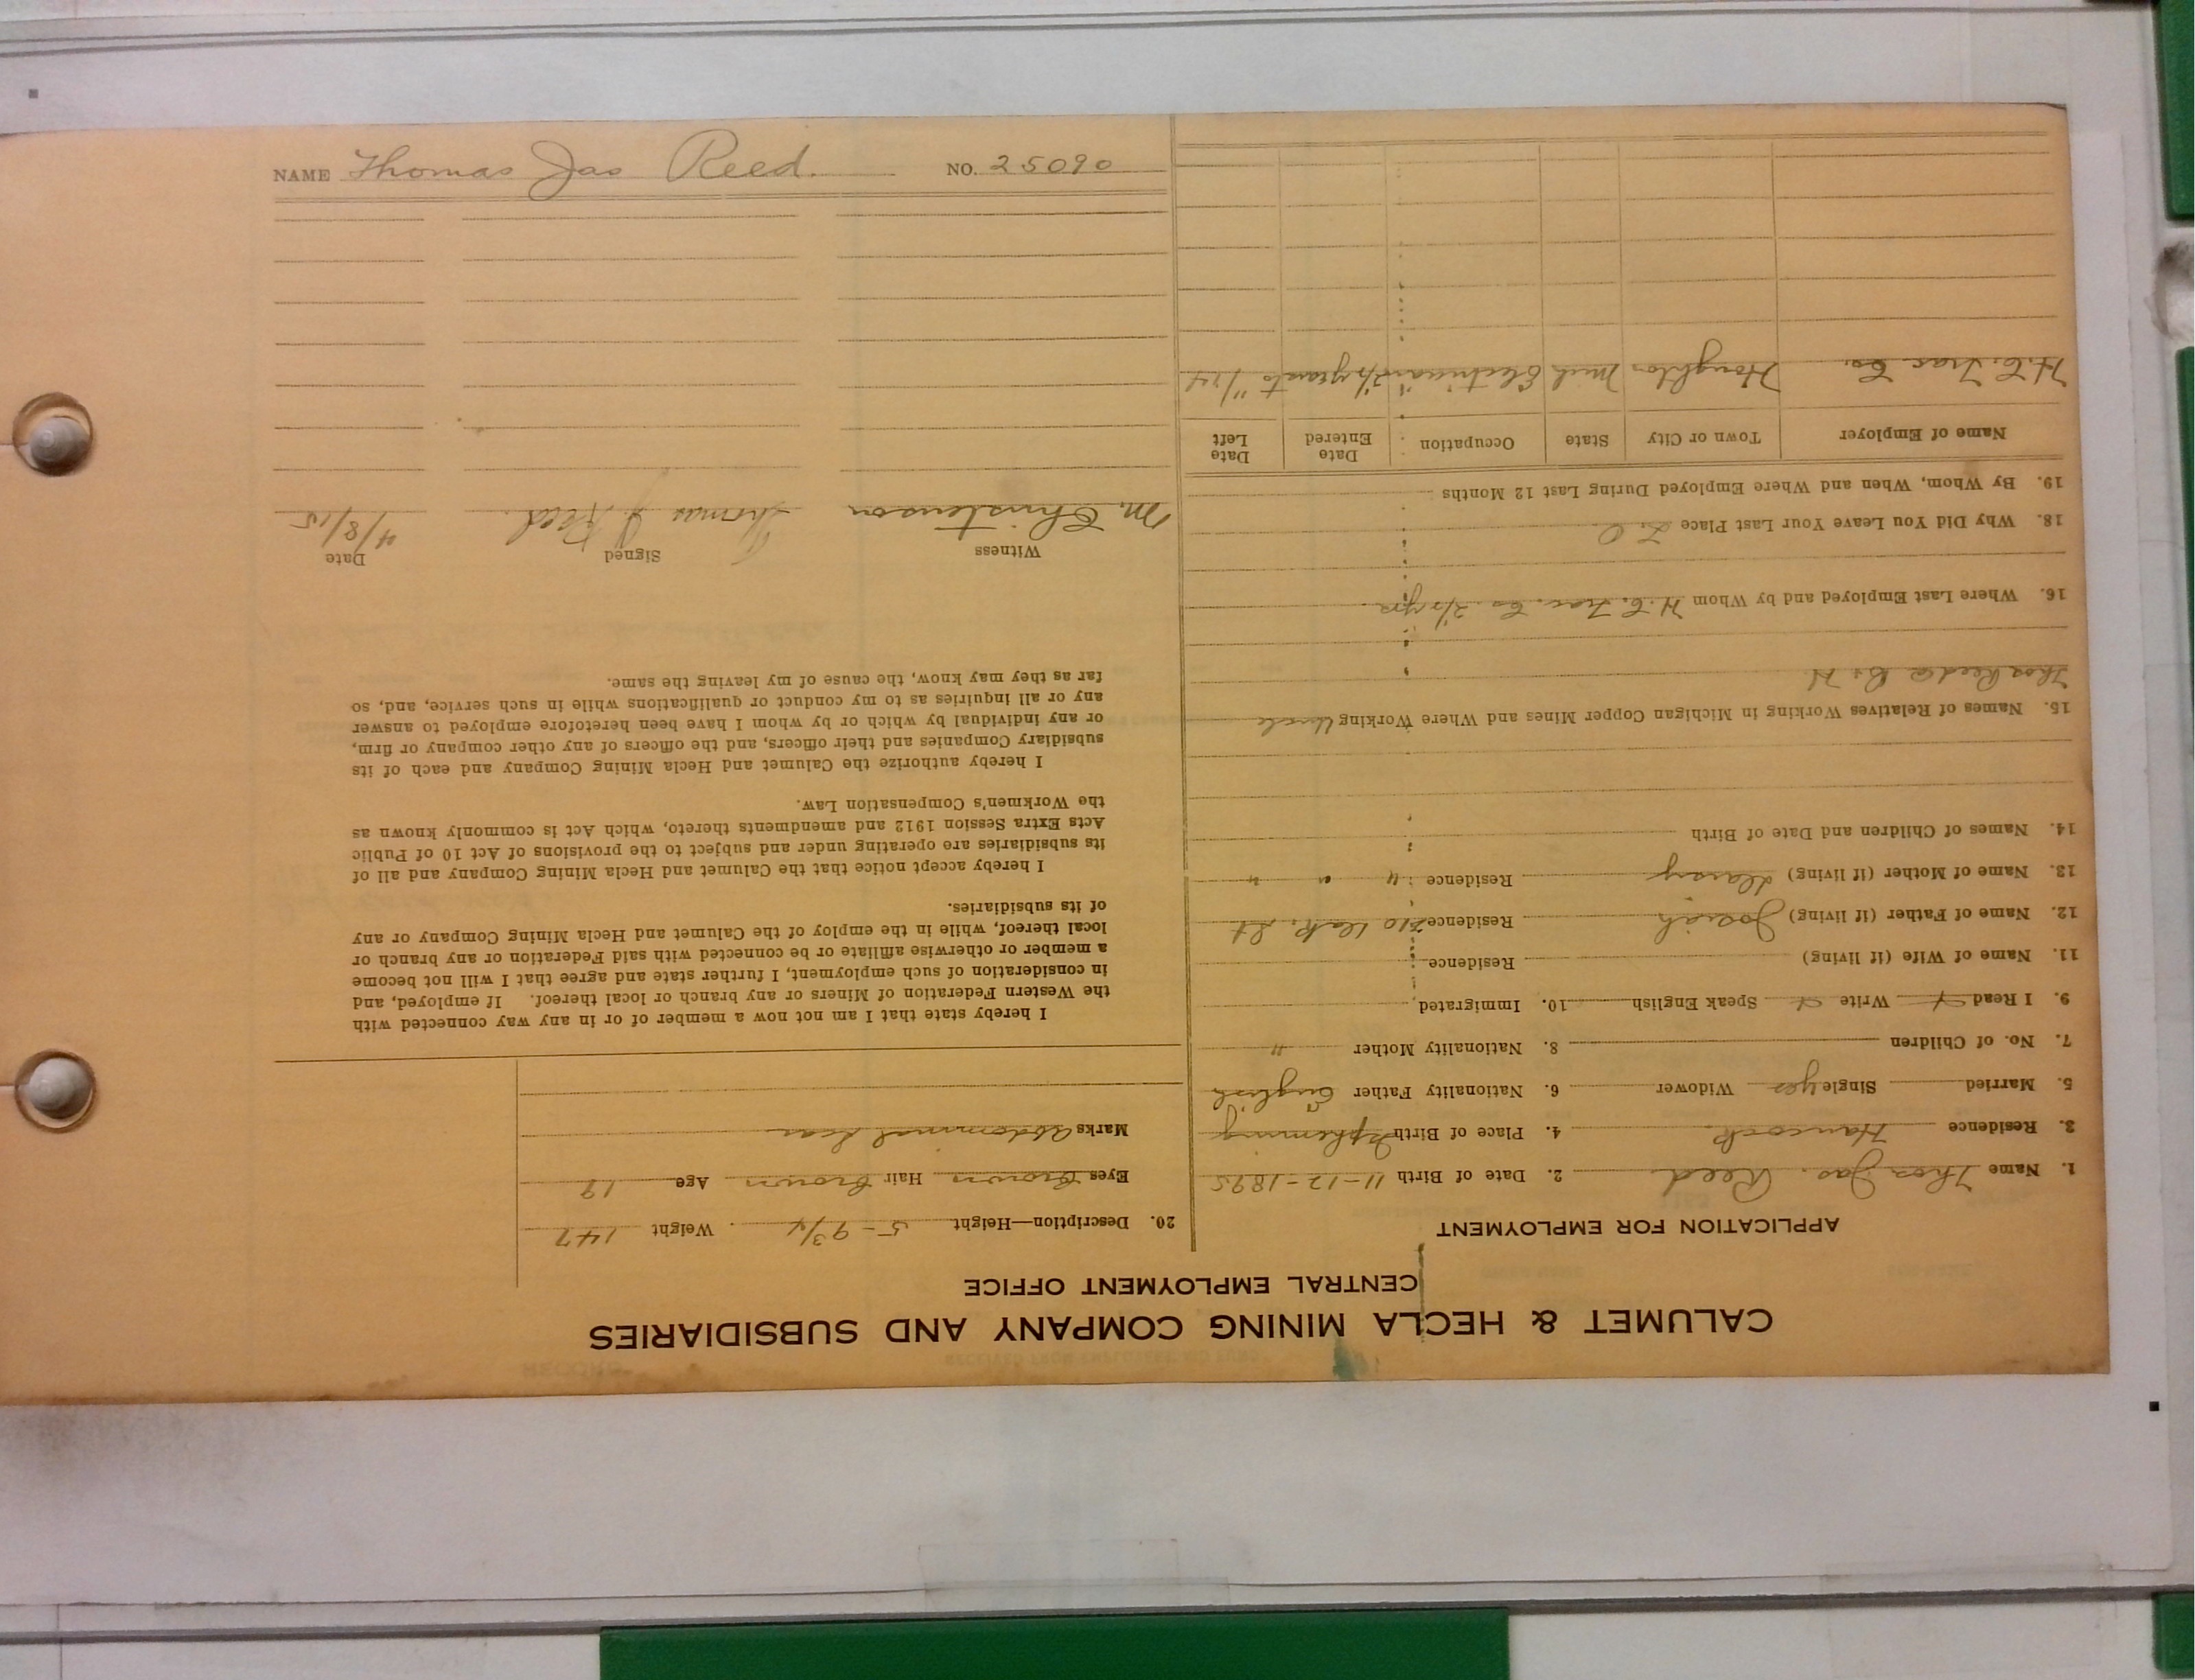 NAME Thomas Jas Reed. NO. 25090
CALUMET & HECLA MINING COMPANY AND SUBSIDIARIES
CENTRAL EMPLOYMENT OFFICE
APPLICATION FOR EMPLOYMENT
1. Name Thos Jas. Reed 2. Date of Birth 11-12-1895
3. Residence Hancock 4. Place of Birth Ishpeming
5. Married Single yes Widower 6. Nationality Father English
7. No. of Children 8. Nationality Mother "
9. I Read Write Speak English 10. Immigrated
11. Name of Wife (if living) Residence
12. Name of Father (if living) Josiah Residence St
13. Name of Mother (if living) Residence " " "
14. Names of Children and Date of Birth
15. Names of Relatives Working in Michigan Copper Mines and Where Working Uncle
Thos Reed
16. Where Last Employed and by Whom H. C. Trac. Co. yrs
18. Why Did You Leave Your Last Place
19. By Whom, When and Where Employed During Last 12 Months
Name of Employer Town or City State Occupation Date Entered Date Left
H. C. Trac Co. Houghton Mich Electrician to 11/14
20. Description—Height 5-9 3/4. Weight 147
Eyes Brown Hair Brown Age 19
Marks Abdominal scar
I hereby state that I am not now a member of or in any way connected with
the Western Federation of Miners or any branch or local thereof. If employed, and
in consideration of such employment, I further state and agree that I will not become
a member or otherwise affiliate or be connected with said Federation or any branch or
local thereof, while in the employ of the Calumet and Hecla Mining Company or any
of its subsidiaries.
I hereby accept notice that the Calumet and Hecla Mining Company and all of
its subsidiaries are operating under and subject to the provisions of Act 10 of Public
Acts Extra Session 1912 and amendments thereto, which Act is commonly known as
the Workmen's Compensation Law.
I hereby authorize the Calumet and Hecla Mining Company and each of its
subsidiary Companies and their officers, and the officers of any other company or firm,
or any individual by which or by whom I have been heretofore employed to answer
any or all inquiries as to my conduct or qualifications while in such service, and, so
far as they may know, the cause of my leaving the same.
Witness Signed Date
M. Christenson Thomas J. Reed. 4/8/15